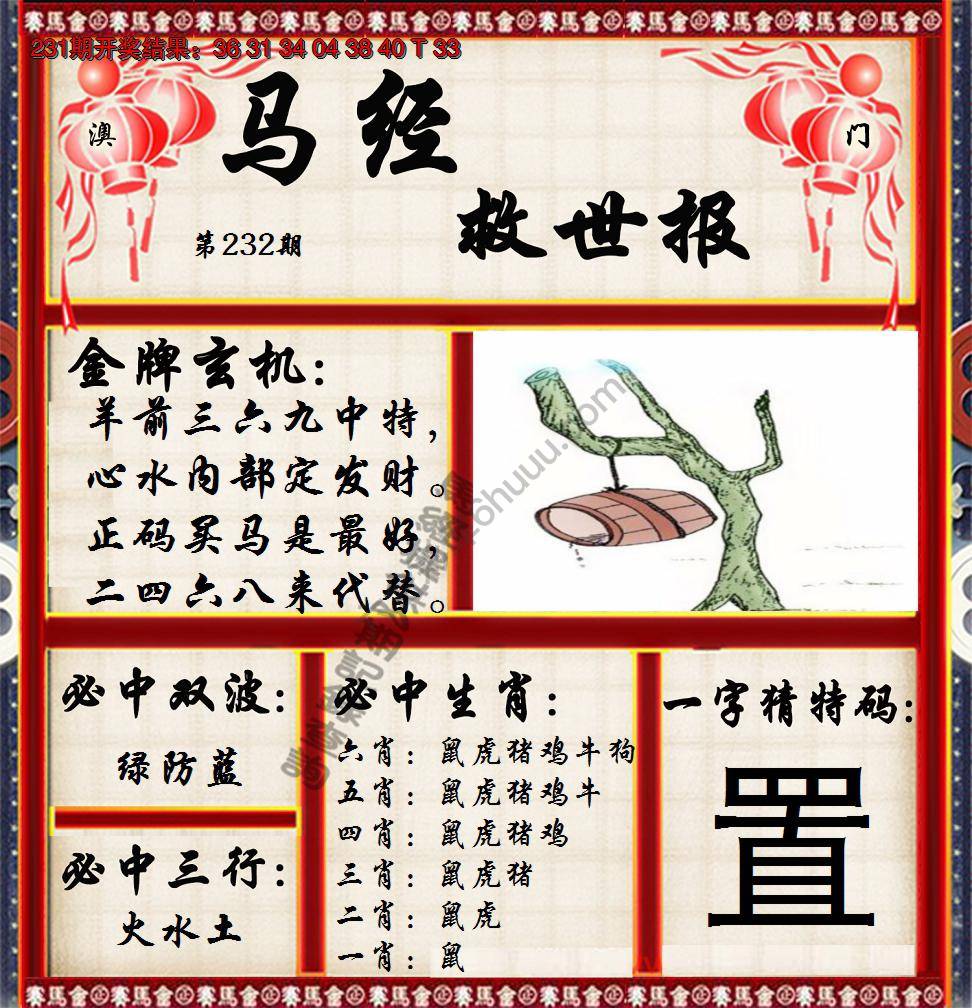 231期开奖结果：36 31 34 04 38 40 T 33
澳
门
马经
救世报
第232期
金牌玄机：
羊前三六九中特，
心水内部定发财。
正码买马是最好，
二四六八来代替。
必中双波：
绿防蓝
必中三行：
火水土
必中生肖：
六肖：鼠虎猪鸡牛狗
五肖：鼠虎猪鸡牛
四肖：鼠虎猪鸡
三肖：鼠虎猪
二肖：鼠虎
一肖：鼠
一字猜特码：
置